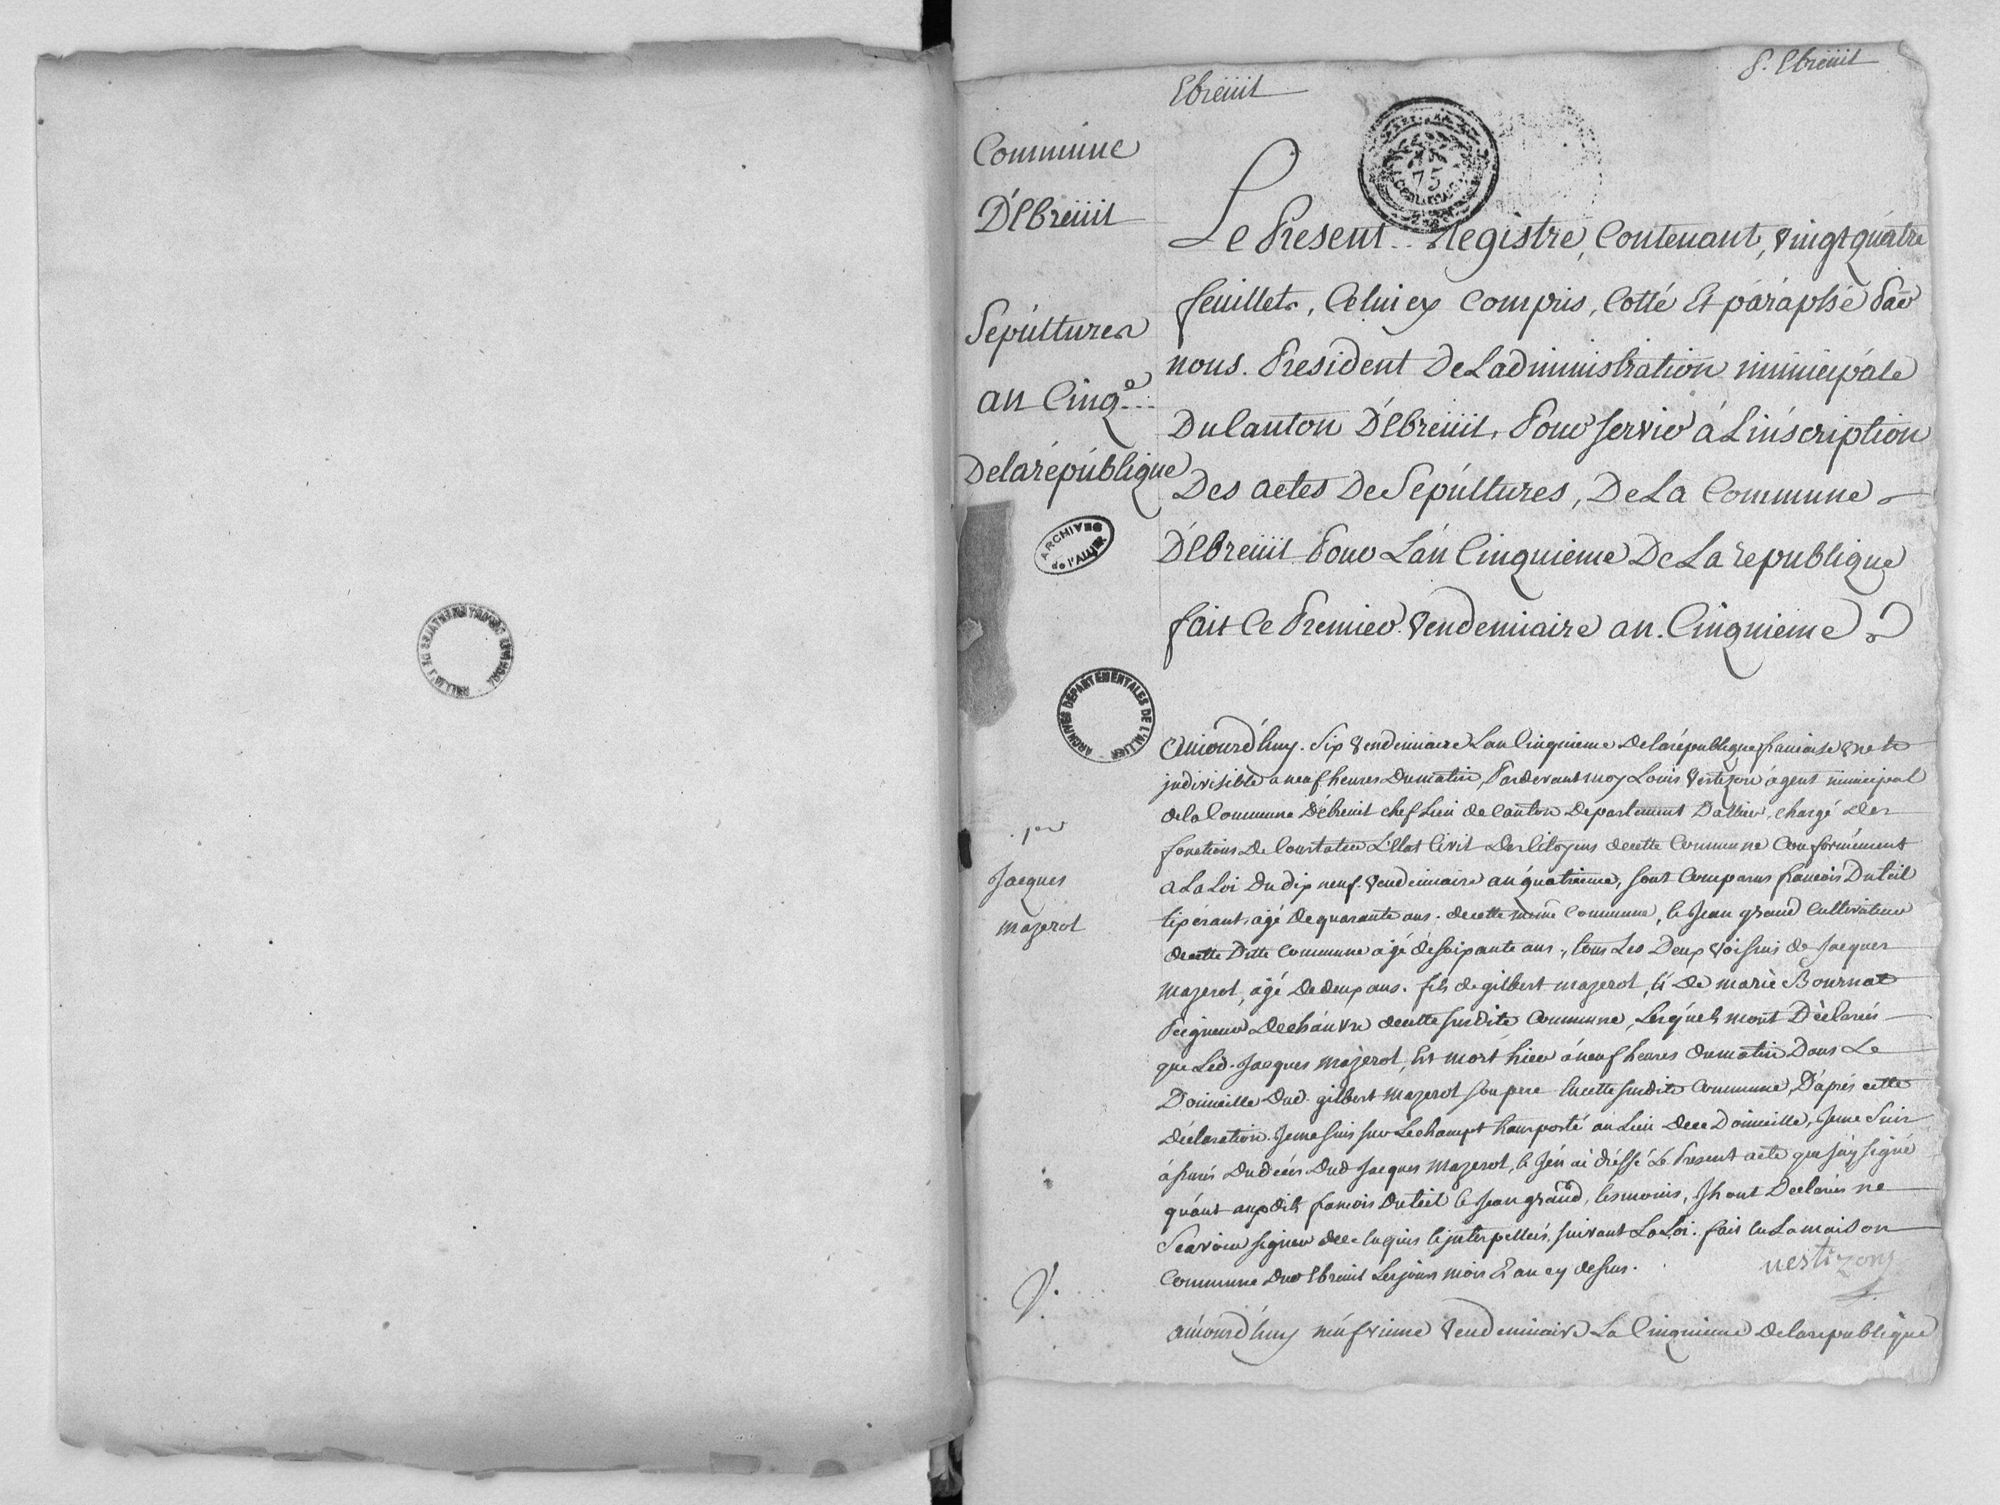 Ebreüil
S. Ebreüil
Commune
D'Ebreüil
Sepúltures
an Cinq.e
Delarépúblique
ARCHIVES
de l'ALLIER
ARCHIVES DÉPARTEMENTALES DE L'ALLIER
ARCHIVES DÉPARTEMENTALES DE L'ALLIER
75
Le Présent Registre, Contenant, vingt quatre
feuillets, Celui cy compris, Cotté Et paraphé Par
nous. President De Ladministration municipale
Du Canton D'Ebreüil, Pour servir à L'inscription
Des actes De Sepúltures, De La Commune
D'Ebreüil Pour L'an Cinquieme De La republique
fait Ce Premier Vendemiaire an Cinquieme
per
Jacques
mazerol
Aujourd'huy. Six Vendemiaire L'an Cinquieme Delarépublique francaise une et
jndivisible a neuf heures Dumatin, Pardevant moy Louis Vestizon agent municipal
dela Commune D'Ebreuil chef Lieu de Canton Departement Dallier, chargé Des
fonctions De Constater L'Etat Civil Des Citoyens decette Commune Conformément
a La Loi Du dix neuf Vendemiaire an quatrieme, sont Comparus francois Duteil
age De quarante ans. decette même Commune, et Jean grand Cultivateur
decette Ditte Commune agé de soixante ans, tous Les Deux Voisins de Jacques
Mazerol, agé De deux ans. fils de gilbert mazerol, et De marie Bournat
Peigneur De chanvre decette susdite Commune, Lesquels mont Déclarés
que Led. Jacques Mazerol, Est mort hier a neuf heures dumatin Dans Le
Domicille Dud. gilbert Mazerol son pere En cette susdite Commune, D'après cette
Déclaration. Jeme suis sur Le champt transporté au Lieu Dece Domicille, Jeme Suis
assuré Dudécés Dud Jacques Mazerol, et Jen ai dressé Le Present acte que j'ay signé
quant auxdits francois Duteil et Jean grand, témoins, Jls ont Declarés ne
Scavoir signer dece Enquis et jnterpellés, suivant La Loi. fait En La maison
Commune Dud Ebreuil Lesjours mois Et an cy dessus.
vestizon
aujourd'huy neufvieme Vendemiaire La Cinquieme Delarepublique